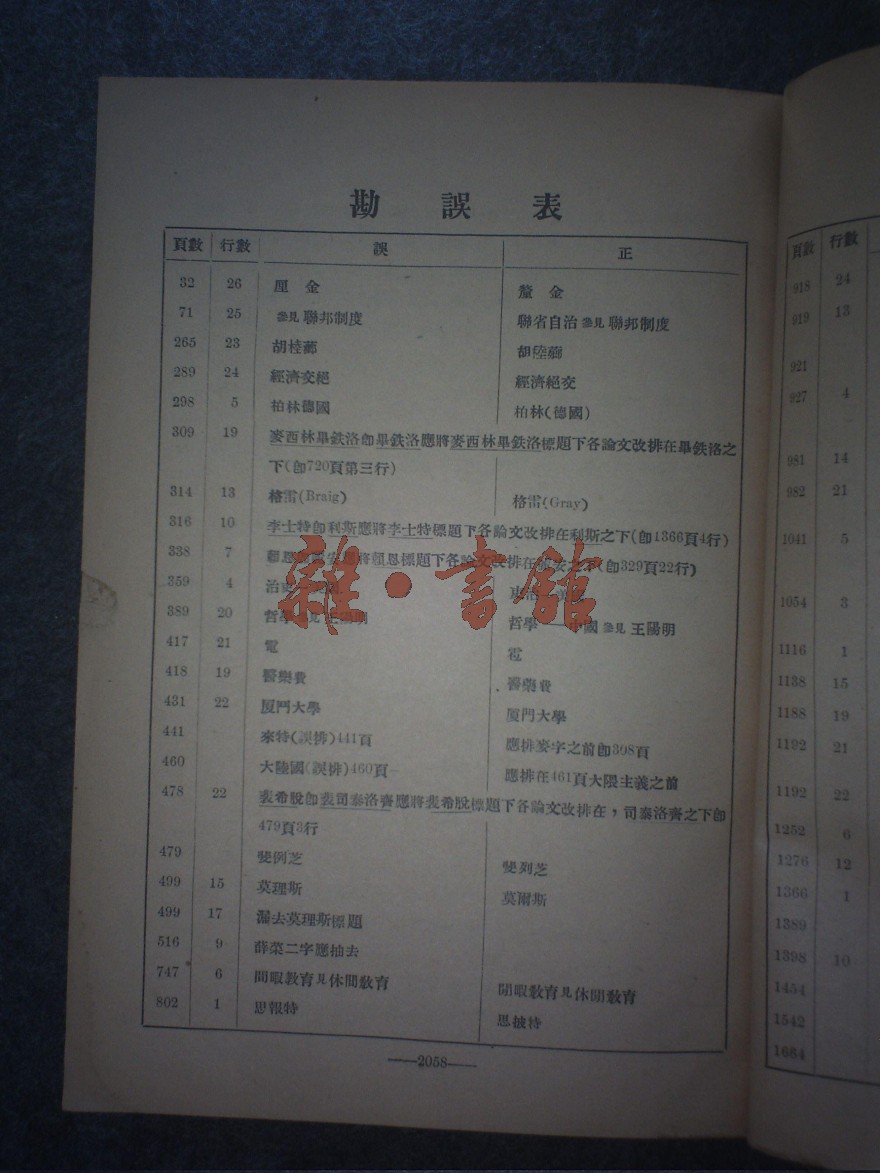 勘誤表
頁數 行數 誤 正
32 26 厘金 釐金
71 25 參見聯邦制度 聯省自治參見聯邦制度
265 23 胡桂
289 24 經濟交絕 經濟絕交
298 5 柏林德國 柏林(德國)
309 19 麥西林畢鉄洛卽畢鉄洛應將麥西林畢鉄洛標題下各論文改排在畢鉄洛之
下(卽720頁第三行)
314 13 格雷(Braig) 格雷(Gray)
316 10 李士特卽利斯應將李士特標題下各論文改排在利斯之下(卽1366頁4行)
338 7 標題下各論文改排在 之下(卽329頁22行)
359 4 治
389 20 哲學 哲學——中國參見王陽明
417 21 電 雹
418 19 醫藥費 醫藥費
431 22 厦門大學 厦門大學
441 來特(誤排)441頁 應排麥字之前卽308頁
460 大陸國(誤排)460頁 應排在461頁大隈主義之前
478 22 裴希脫卽裴司泰洛齊應將裴希脫標題下各論文改排在,司泰洛齊之下卽
479頁3行
479 斐例芝 斐列芝
499 15 莫理斯 莫爾斯
499 17 漏去莫理斯標題
516 9 薛榮二字應抽去
747 6 間暇教育見休間教育 閒暇教育見休閒教育
802 1 思報特 思披特
——2058——
雜·書舘
頁數 行數
918 24
919 13
921
927 4
981 14
982 21
1041 5
1054 3
1116 1
1138 15
1188 19
1192 21
1192 22
1252 6
1276 12
1366 1
1389
1398 10
1454
1542
1664